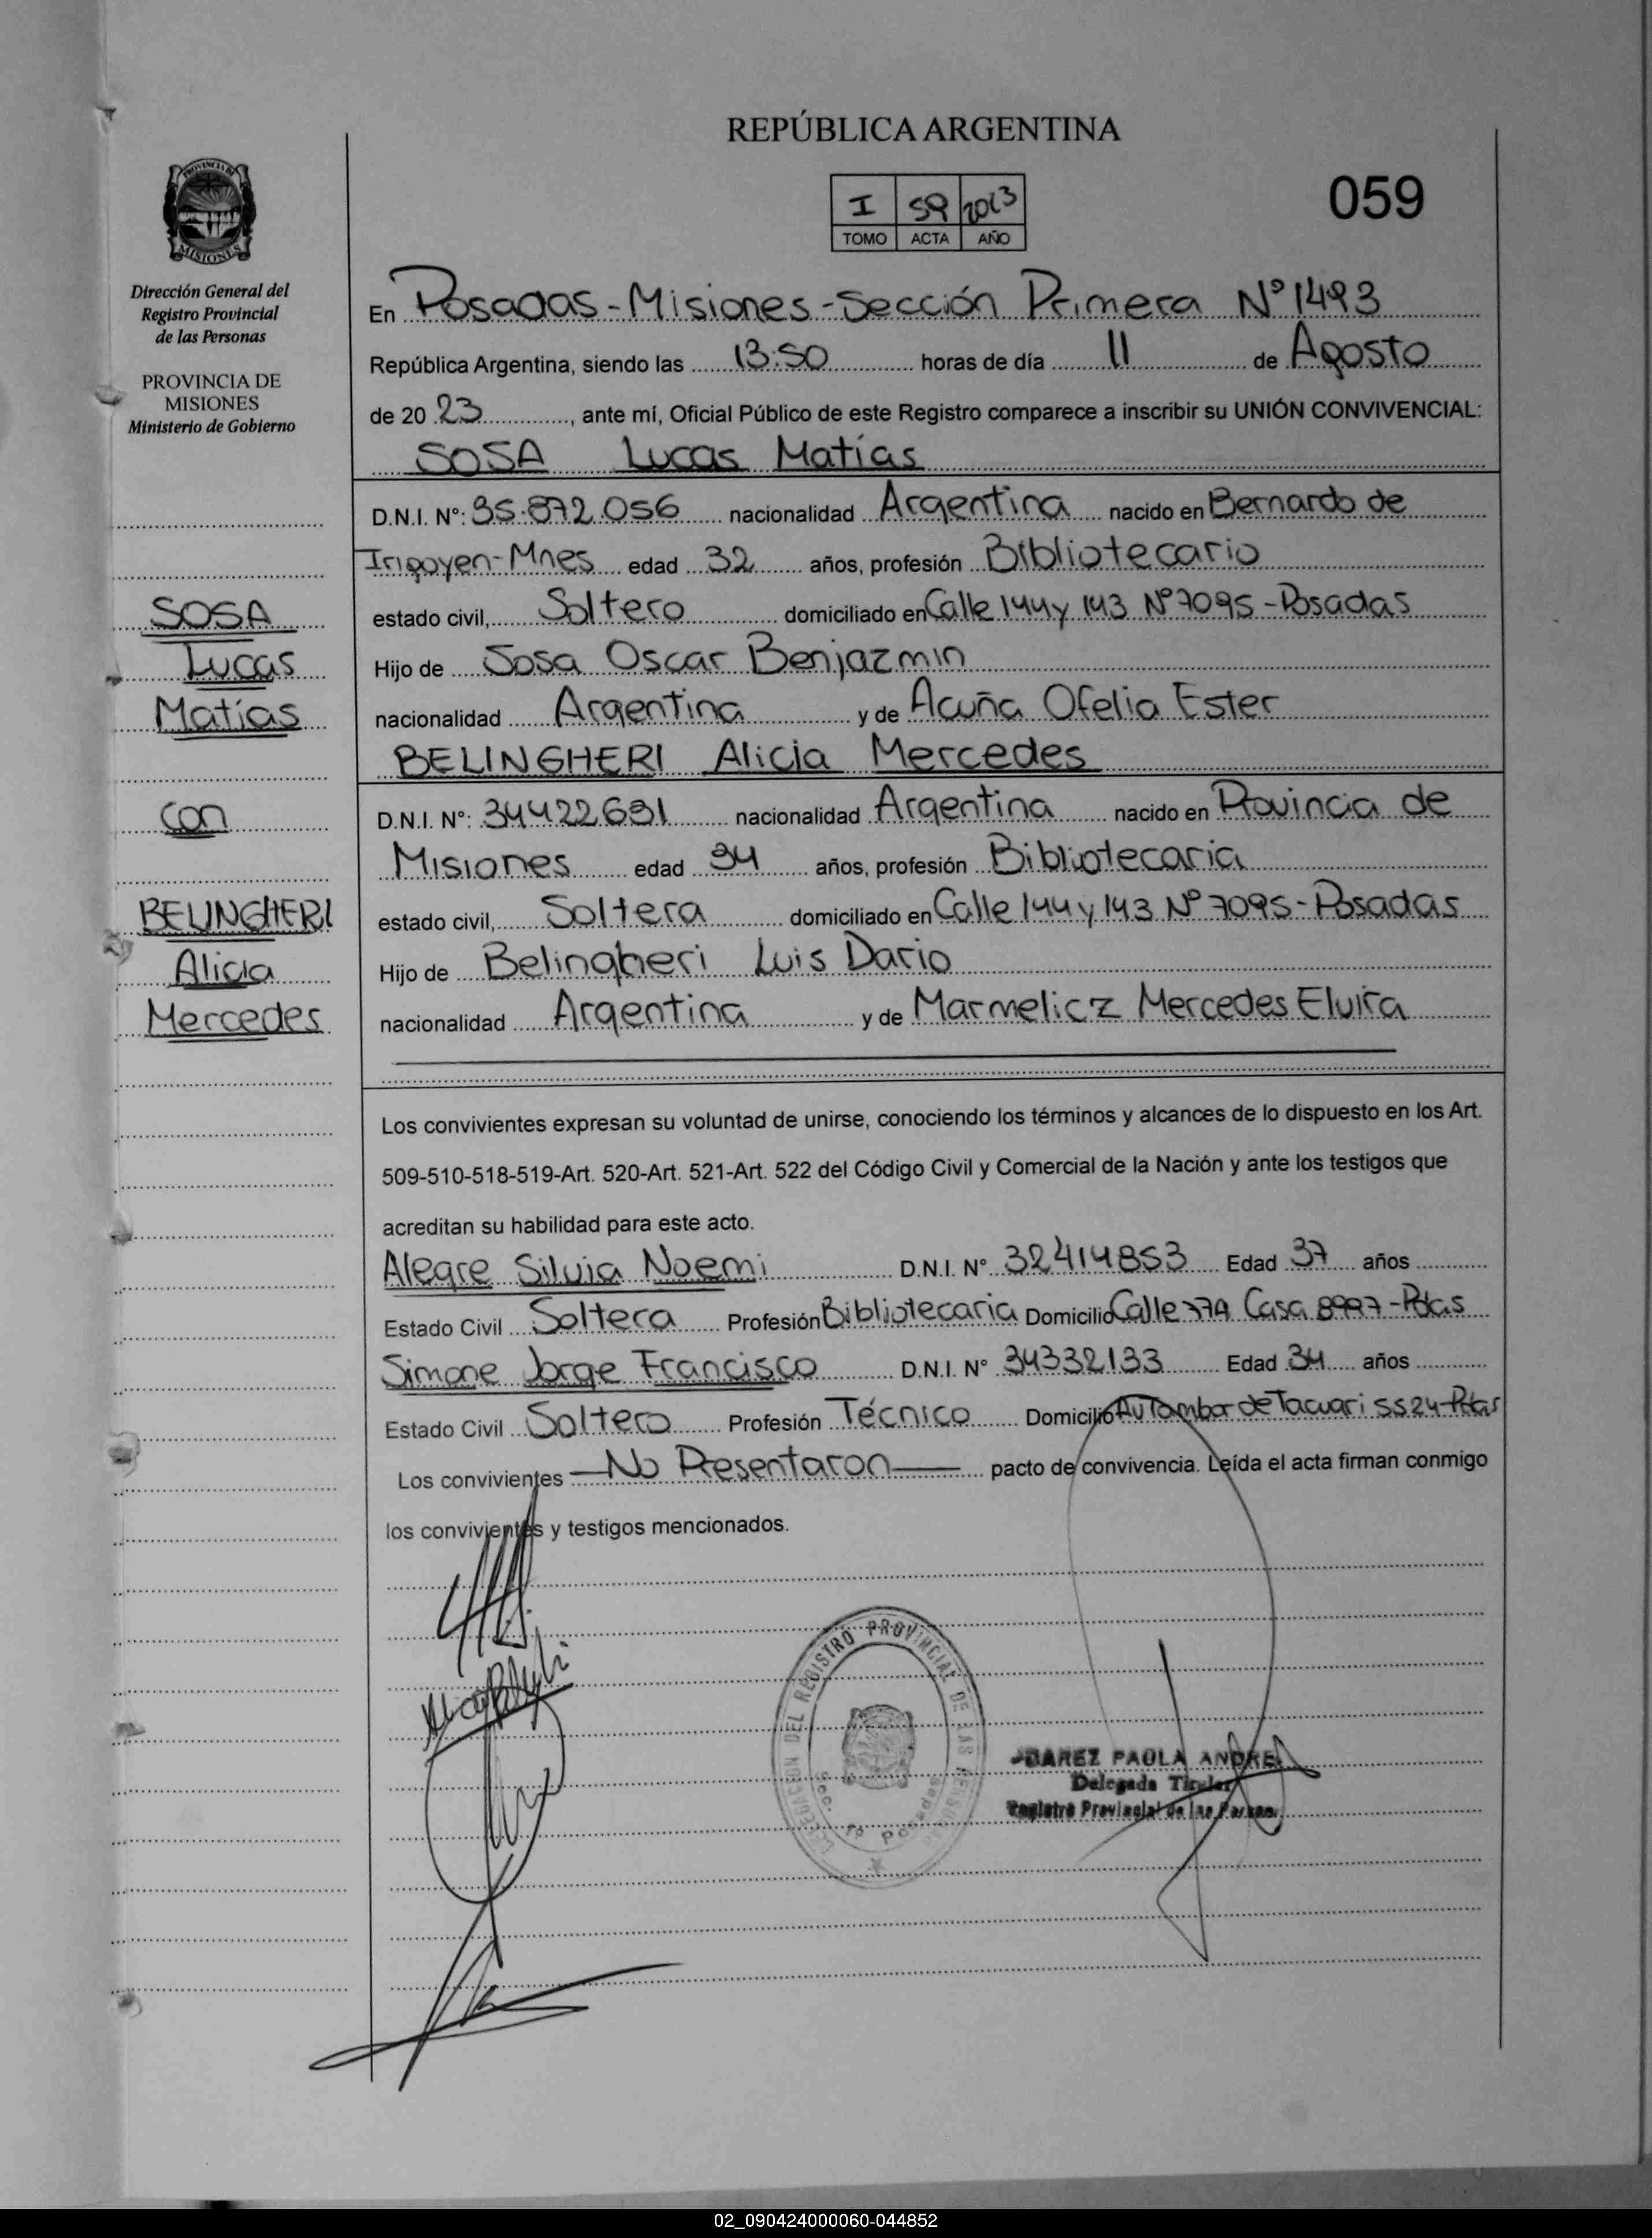 REPÚBLICA ARGENTINA
I 59 2023
TOMO ACTA AÑO
059
PROVINCIA DE
MISIONES
Dirección General del
Registro Provincial
de las Personas
PROVINCIA DE
MISIONES
Ministerio de Gobierno
SOSA
Lucas
Matías
con
BELINGHERI
Alicia
Mercedes
En Posadas-Misiones-Sección Primera N° 1493
República Argentina, siendo las 13:50 horas de día 11 de Agosto
de 20 23, ante mí, Oficial Público de este Registro comparece a inscribir su UNIÓN CONVIVENCIAL:
SOSA Lucas Matías
D.N.I. N°: 35.872.056 nacionalidad Argentina nacido en Bernardo de
Irigoyen-Mnes edad 32 años, profesión Bibliotecario
estado civil, Soltero domiciliado en Calle 144 y 143 N° 7095-Posadas
Hijo de Sosa Oscar Benjazmin
nacionalidad Argentina y de Acuña Ofelia Ester
BELINGHERI Alicia Mercedes
D.N.I. N°: 34422691 nacionalidad Argentina nacido en Provincia de
Misiones edad 34 años, profesión Bibliotecaria
estado civil, Soltera domiciliado en Calle 144 y 143 N° 7095-Posadas
Hijo de Belingheri Luis Dario
nacionalidad Argentina y de Marmelicz Mercedes Elvira
Los convivientes expresan su voluntad de unirse, conociendo los términos y alcances de lo dispuesto en los Art.
509-510-518-519-Art. 520-Art. 521-Art. 522 del Código Civil y Comercial de la Nación y ante los testigos que
acreditan su habilidad para este acto.
Alegre Silvia Noemi D.N.I. N° 32414853 Edad 37 años
Estado Civil Soltera Profesión Bibliotecaria Domicilio Calle 37A Casa 8997-Pdas
Simone Jorge Francisco D.N.I. N° 34332133 Edad 34 años
Estado Civil Soltero Profesión Técnico Domicilio Av Tambor de Tacuari 5524-Pdas
Los convivientes No Presentaron pacto de convivencia. Leída el acta firman conmigo
los convivientes y testigos mencionados.
DELEGACION DEL REGISTRO PROVINCIAL DE LAS PERSONAS
Sec. 1ª Posadas
JUAREZ PAOLA ANDREA
Delegada Titular
Registro Provincial de las Personas
02_090424000060-044852